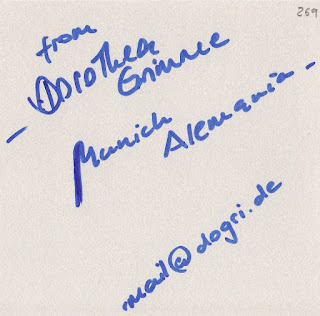 269
from
Dorothea
Grimme
- Munich
Alemania -
mail@dogri.de